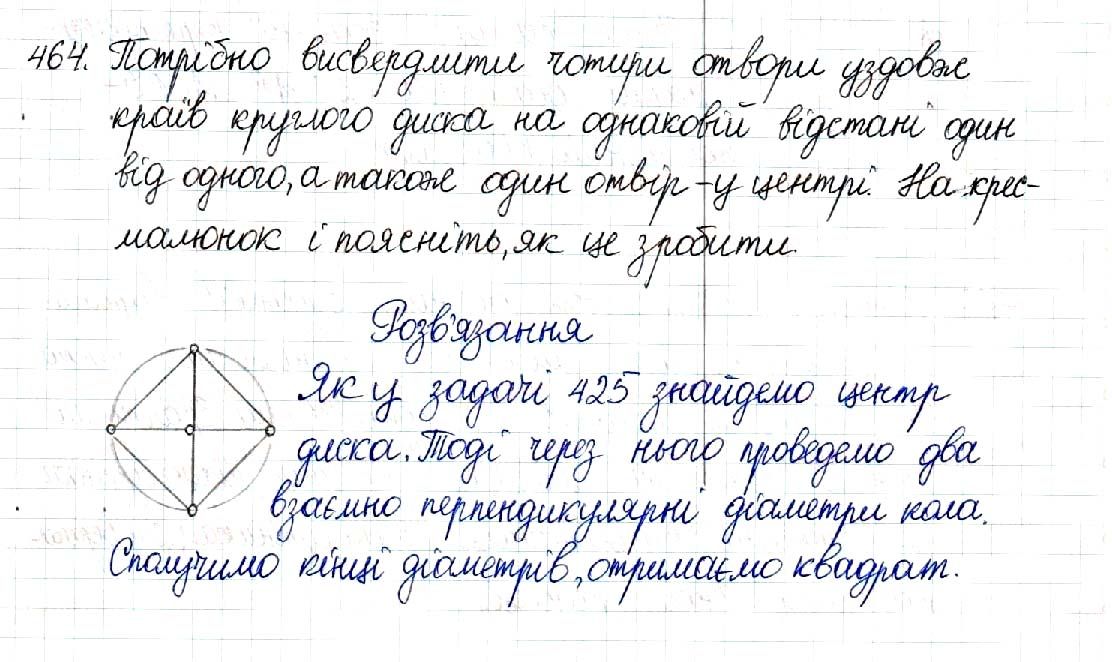 464. Потрібно висвердлити чотири отвори уздовж
країв круглого диска на однаковій відстані один
від одного, а також один отвір – у центрі. На крес-
малюнок і поясніть, як це зробити.
Розв'язання
Як у задачі 425 знайдемо центр
диска. Тоді через нього проведемо два
взаємно перпендикулярні діаметри кола.
Сполучимо кінці діаметрів, отримаємо квадрат.